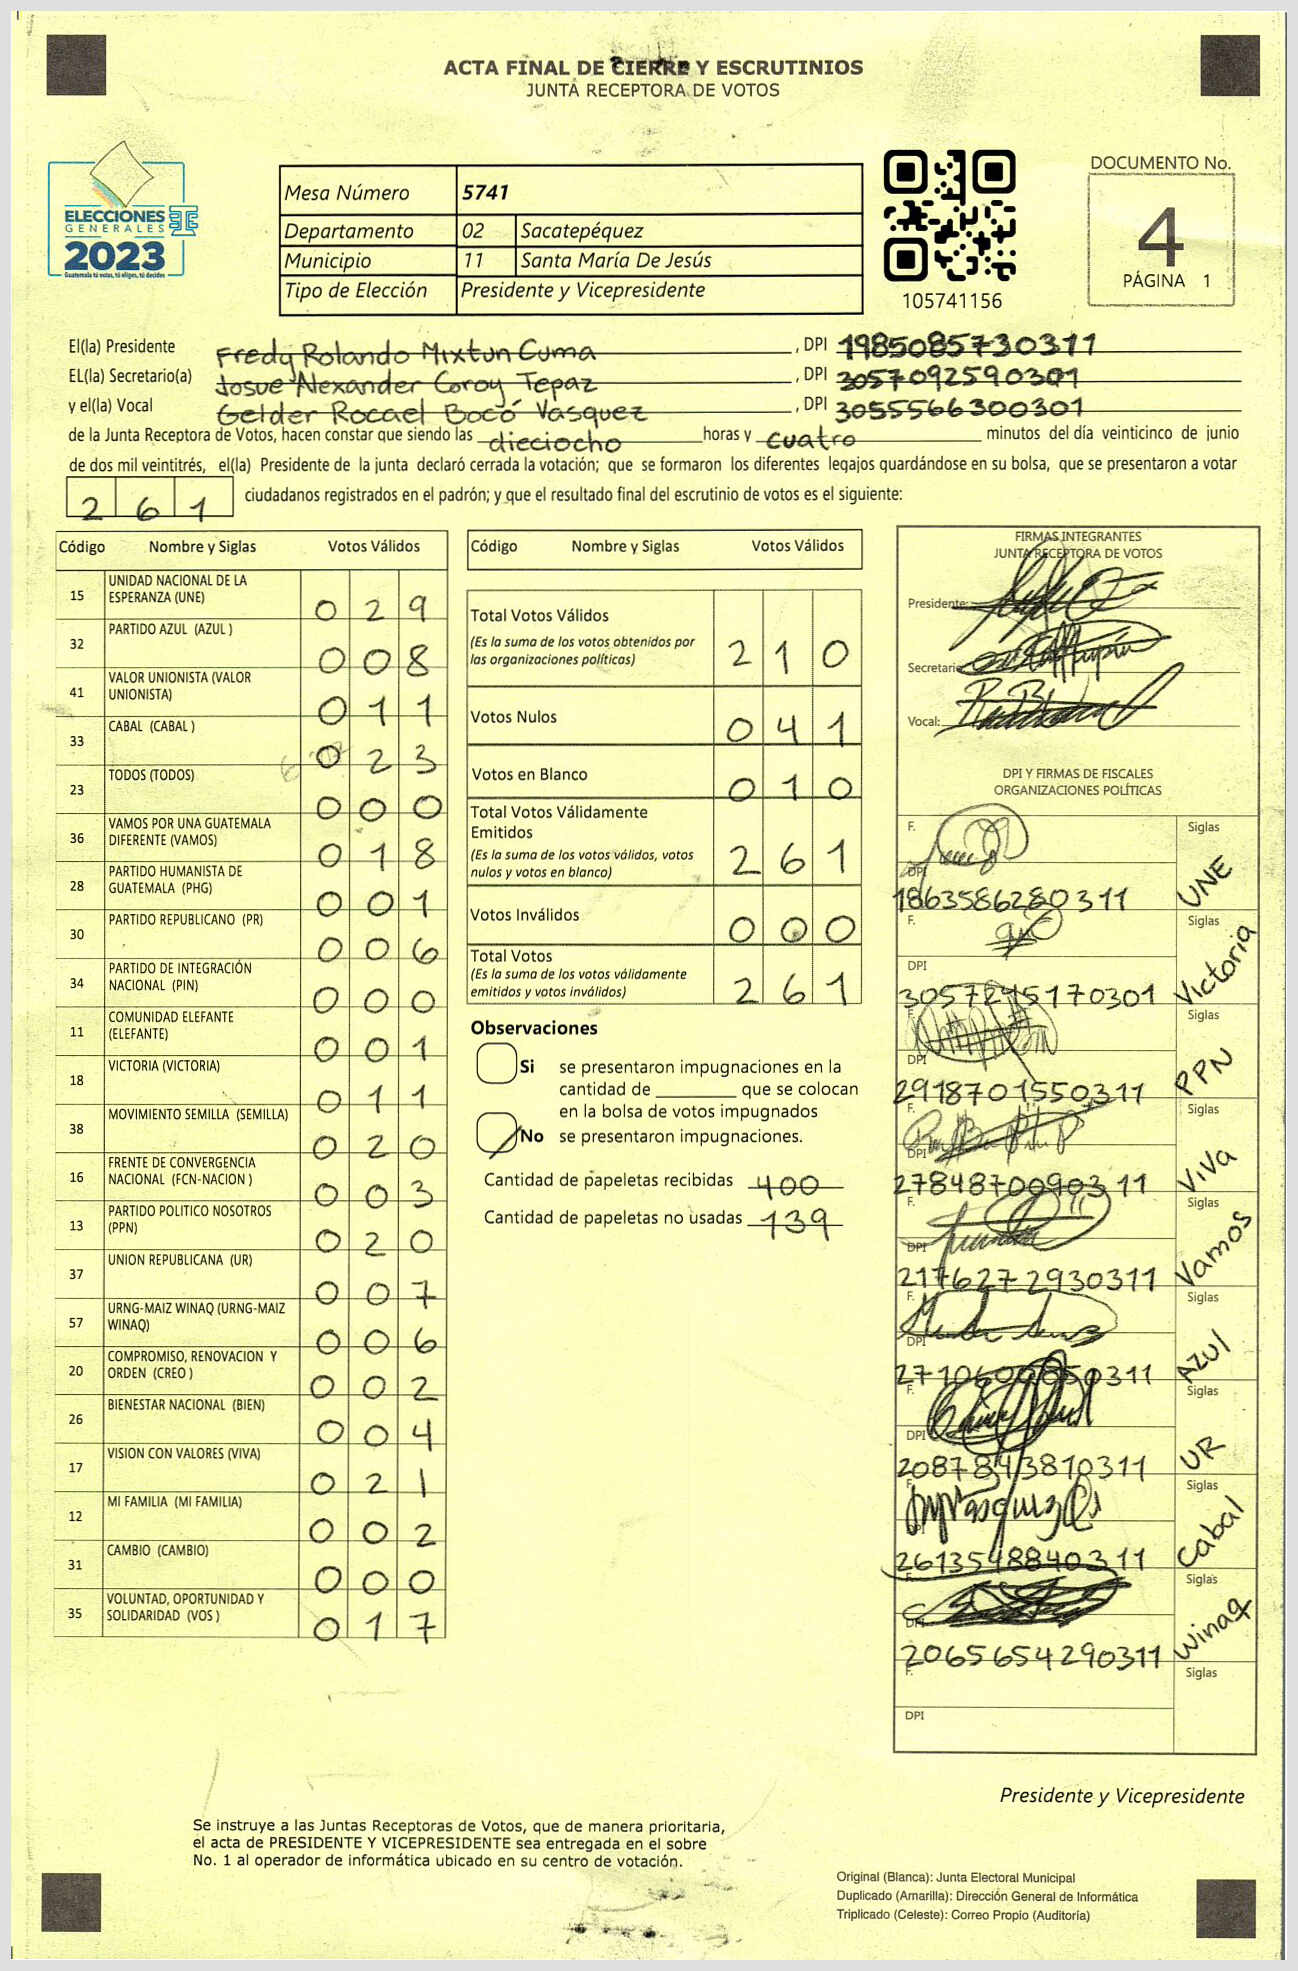 ACTA FINAL DE CIERRE Y ESCRUTINIOS
JUNTA RECEPTORA DE VOTOS
ELECCIONES
GENERALES
2023
Guatemala tú votas, tú eliges, tú decides
Mesa Número 5741
Departamento 02 Sacatepéquez
Municipio 11 Santa María De Jesús
Tipo de Elección Presidente y Vicepresidente
105741156
DOCUMENTO No.
4
PÁGINA 1
El(la) Presidente Fredy Rolando Mixtun Cuma, DPI 1985085730311
EL(la) Secretario(a) Josue Alexander Coroy Tepaz, DPI 3057092590301
y el(la) Vocal Gelder Rocael Bocó Vasquez, DPI 3055566300301
de la Junta Receptora de Votos, hacen constar que siendo las dieciocho horas y cuatro minutos del día veinticinco de junio
de dos mil veintitrés, el(la) Presidente de la junta declaró cerrada la votación; que se formaron los diferentes legajos quardándose en su bolsa, que se presentaron a votar
261 ciudadanos registrados en el padrón; y que el resultado final del escrutinio de votos es el siguiente:
Código Nombre y Siglas Votos Válidos
15 UNIDAD NACIONAL DE LA ESPERANZA (UNE) 029
32 PARTIDO AZUL (AZUL ) 008
41 VALOR UNIONISTA (VALOR UNIONISTA) 011
33 CABAL (CABAL ) 023
23 TODOS (TODOS) 000
36 VAMOS POR UNA GUATEMALA DIFERENTE (VAMOS) 018
28 PARTIDO HUMANISTA DE GUATEMALA (PHG) 001
30 PARTIDO REPUBLICANO (PR) 006
34 PARTIDO DE INTEGRACIÓN NACIONAL (PIN) 000
11 COMUNIDAD ELEFANTE (ELEFANTE) 001
18 VICTORIA (VICTORIA) 011
38 MOVIMIENTO SEMILLA (SEMILLA) 020
16 FRENTE DE CONVERGENCIA NACIONAL (FCN-NACION ) 003
13 PARTIDO POLITICO NOSOTROS (PPN) 020
37 UNION REPUBLICANA (UR) 007
57 URNG-MAIZ WINAQ (URNG-MAIZ WINAQ) 006
20 COMPROMISO, RENOVACION Y ORDEN (CREO ) 002
26 BIENESTAR NACIONAL (BIEN) 004
17 VISION CON VALORES (VIVA) 021
12 MI FAMILIA (MI FAMILIA) 002
31 CAMBIO (CAMBIO) 000
35 VOLUNTAD, OPORTUNIDAD Y SOLIDARIDAD (VOS ) 017
Código Nombre y Siglas Votos Válidos
Total Votos Válidos 210
(Es la suma de los votos obtenidos por
las organizaciones políticas)
Votos Nulos 041
Votos en Blanco 010
Total Votos Válidamente
Emitidos 261
(Es la suma de los votos válidos, votos
nulos y votos en blanco)
Votos Inválidos 000
Total Votos 261
(Es la suma de los votos válidamente
emitidos y votos inválidos)
Observaciones
Si se presentaron impugnaciones en la
cantidad de ________ que se colocan
en la bolsa de votos impugnados
No se presentaron impugnaciones.
Cantidad de papeletas recibidas 400
Cantidad de papeletas no usadas 139
FIRMAS INTEGRANTES
JUNTA RECEPTORA DE VOTOS
Presidente:
Secretario
Vocal:
DPI Y FIRMAS DE FISCALES
ORGANIZACIONES POLÍTICAS
F. Siglas
DPI 1863586280311 UNE
F. Siglas
DPI 3057245170301 Victoria
F. Siglas
DPI 2918701550311 PPN
F. Siglas
DPI 2784870090311 ViVa
F. Siglas
DPI 2176272930311 Vamos
F. Siglas
DPI 2710600850311 AZUl
F. Siglas
DPI 2087843810311 UR
F. Siglas
DPI 2613548840311 Cabal
F. Siglas
DPI 2065654290311 Winaq
F. Siglas
DPI
Presidente y Vicepresidente
Se instruye a las Juntas Receptoras de Votos, que de manera prioritaria,
el acta de PRESIDENTE Y VICEPRESIDENTE sea entregada en el sobre
No. 1 al operador de informática ubicado en su centro de votación.
Original (Blanca): Junta Electoral Municipal
Duplicado (Amarilla): Dirección General de Informática
Triplicado (Celeste): Correo Propio (Auditoría)